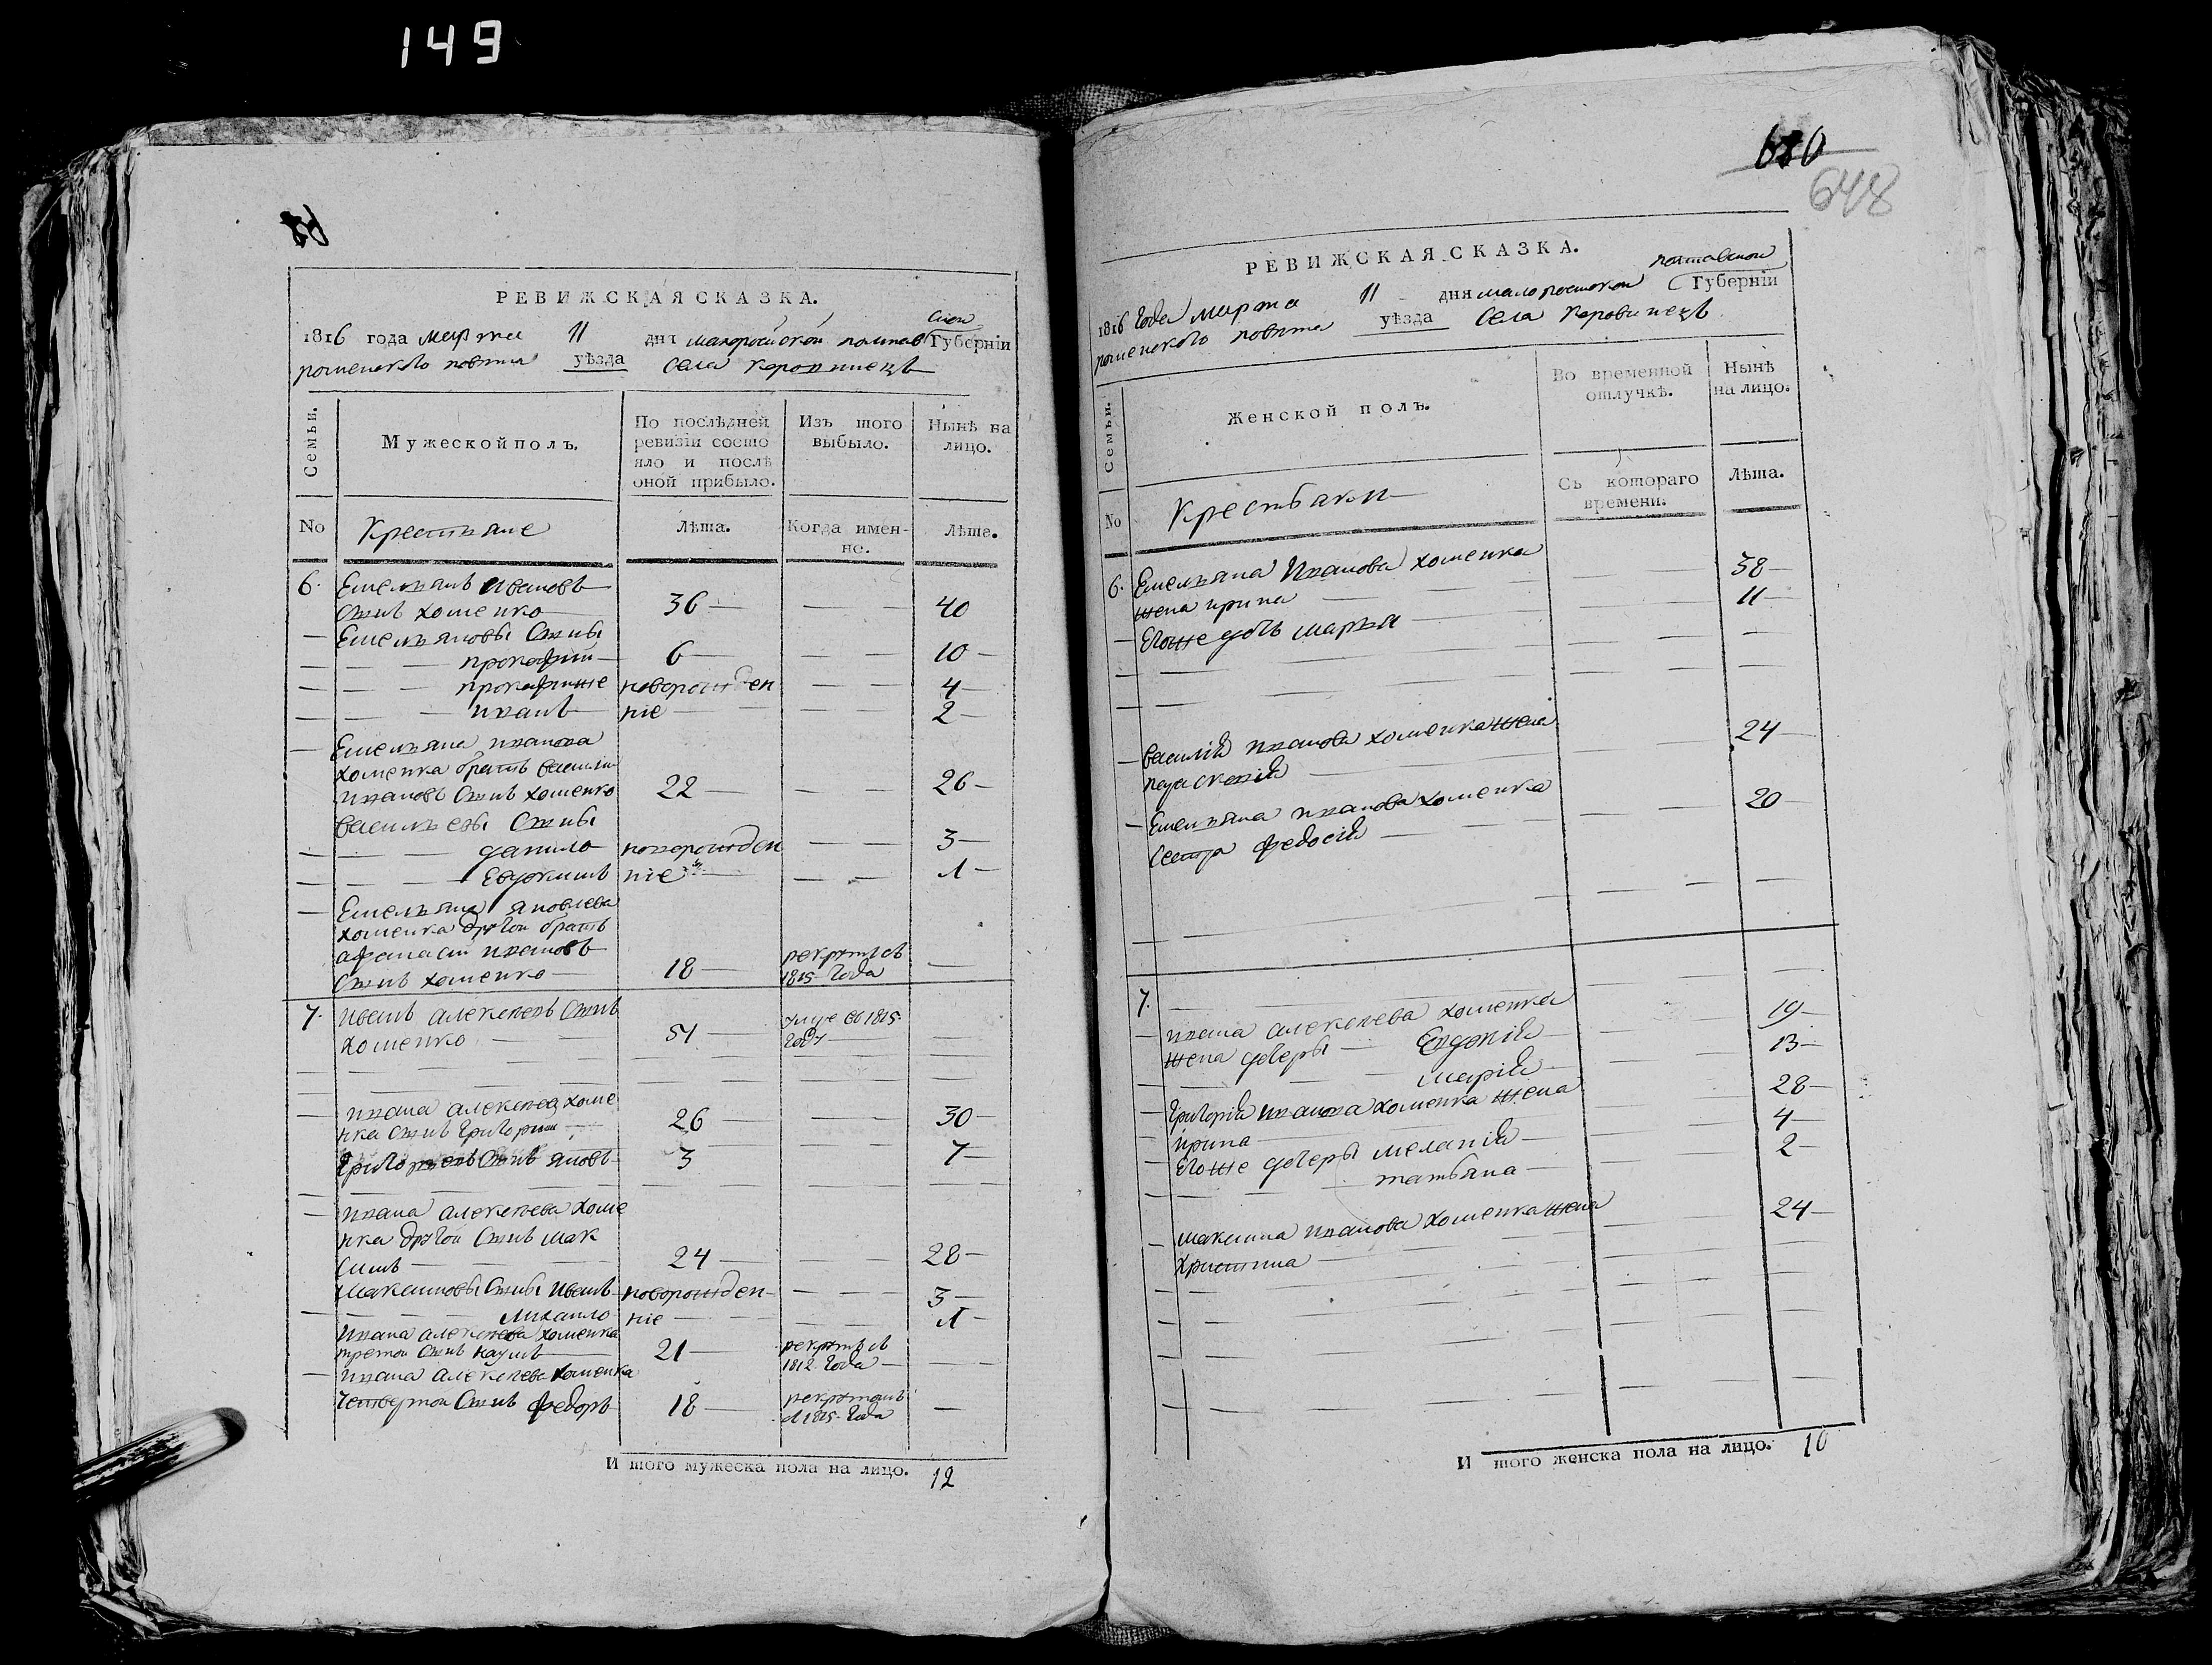 149
РЕВИЖСКАЯ СКАЗКА.
1816 года марта 11 дня малоросийской полтав
ской Губерніи
роменского повѣта уѣзда села Коровинецъ
Семьи.
Мужеской полъ.
По послѣдней ревизіи состояло и послѣ оной прибыло.
Изъ того выбыло.
Нынѣ на лицо.
No
Крестьяне
Лѣта.
Когда именно.
Лѣта.
6. Емельянъ Ивановъ
сынъ хоменко 36 40
Емельяновы сыны
прокофий 6 10
прокофиже новорожден 4
иванъ ніе 2
Емельяна иванова
хоменка братъ василий
ивановъ сынъ хоменко 22 26
васильевы сыны
данило новорожден 3
Евдокимъ ніе 1
Емельяна яковлева
хоменка другой братъ
афанасий ивановъ рекрутъ съ
сынъ хоменко 18 1815 года
7. иванъ алексеевъ сынъ
хоменко 51 умре въ 1815 году
ивана алексеева хоме
нка сынъ григорий 26 30
григорьевъ сынъ яковъ 3 7
ивана алексеева хоме
нка другой сынъ мак
симъ 24 28
максимовы сыны иванъ новорожден 3
михайло ніе 1
ивана алексеева хоменка
третой сынъ наумъ 21 рекрутъ съ 1812 года
ивана алексеева хоменка
четвертой сынъ федоръ 18 рекрутомъ с 1815 года
И того мужеска пола на лицо. 12
648
РЕВИЖСКАЯ СКАЗКА.
полтавской
1816 года марта 11 дня малоросиской Губерніи
роменского повѣта уѣзда села Коровинецъ
Семьи.
Женской полъ.
Во временной отлучкѣ.
Нынѣ на лицо.
No
Крестьянки
Съ котораго времени.
Лѣта.
6. Емельяна Иванова хоменка
жена ирина 38
Егоже дочь марья 11
василія иванова хоменка жена
параскевія 24
Емельяна иванова хоменка
сестра федосія 20
7.
ивана алексеева хоменка
жена дочеры Евдокія 19
марія 13
григорія иванова хоменка жена
ирина 28
Егоже дочеры меланія 4
татьяна 2
максима иванова хоменка жена
христина 24
И того женска пола на лицо. 10